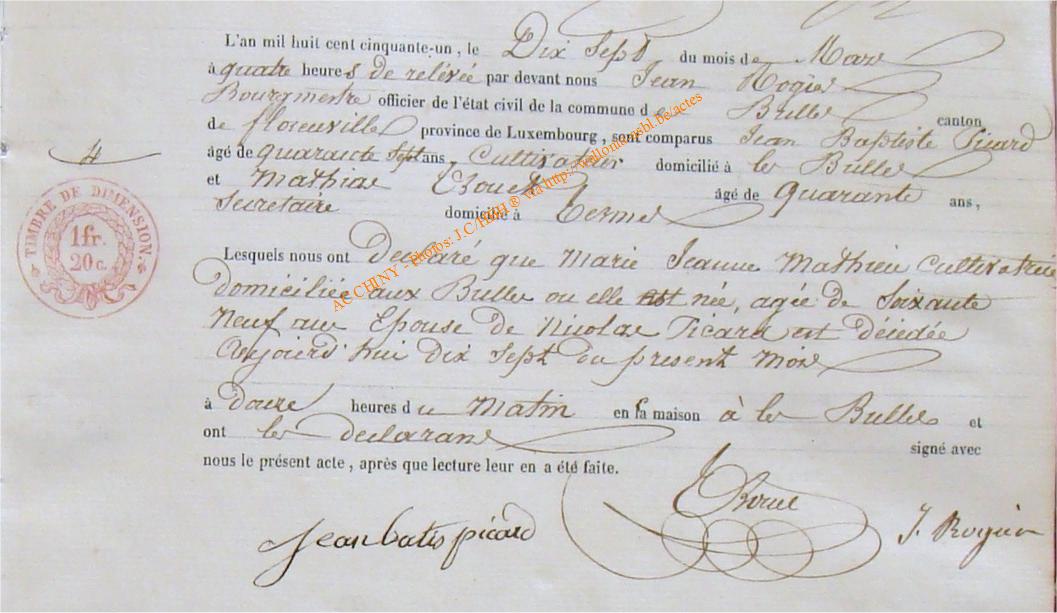 L'an mil huit cent cinquante-un, le Dix Sept du mois de Mars
à quatre heures de relévée par devant nous Jean Rogier
Bourgmestre officier de l'état civil de la commune des Bulles canton
de florenville province de Luxembourg, sont comparus Jean Baptiste Picard
âgé de quarante Sept ans, Cultivateur domicilié à les Bulles
et Mathias âgé de quarante ans,
Secretaire domicilié à Termes
4
TIMBRE DE DIMENSION
1 fr.
20 c.
Lesquels nous ont Declaré que Marie Jeanne Mathieu Cultivatrice
domiciliée aux Bulles ou elle est née, agée de Soixante
Neuf ans Epouse de Nicolas Picard est décédée
Aujourd'hui Dix Sept du present Mois
à douze heures du Matin en sa maison à les Bulles et
ont les declarans signé avec
nous le présent acte, après que lecture leur en a été faite.
jean batis picard
J. Rogier
AC CHINY - Photos: J.C/HBH ® via http://walloniaasbl.be/actes